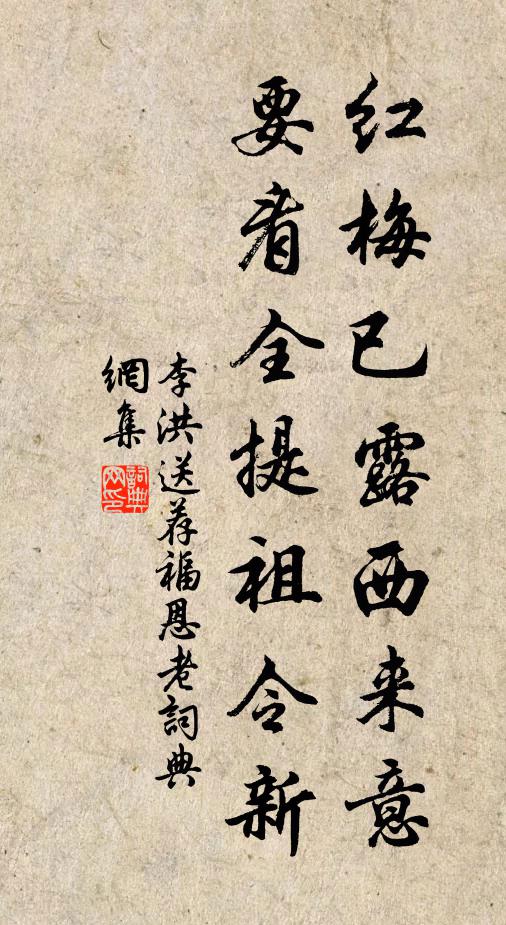 红梅已露西来意
要看全提祖令新
李洪送荐福恩老詞典
網集
詞典
网印